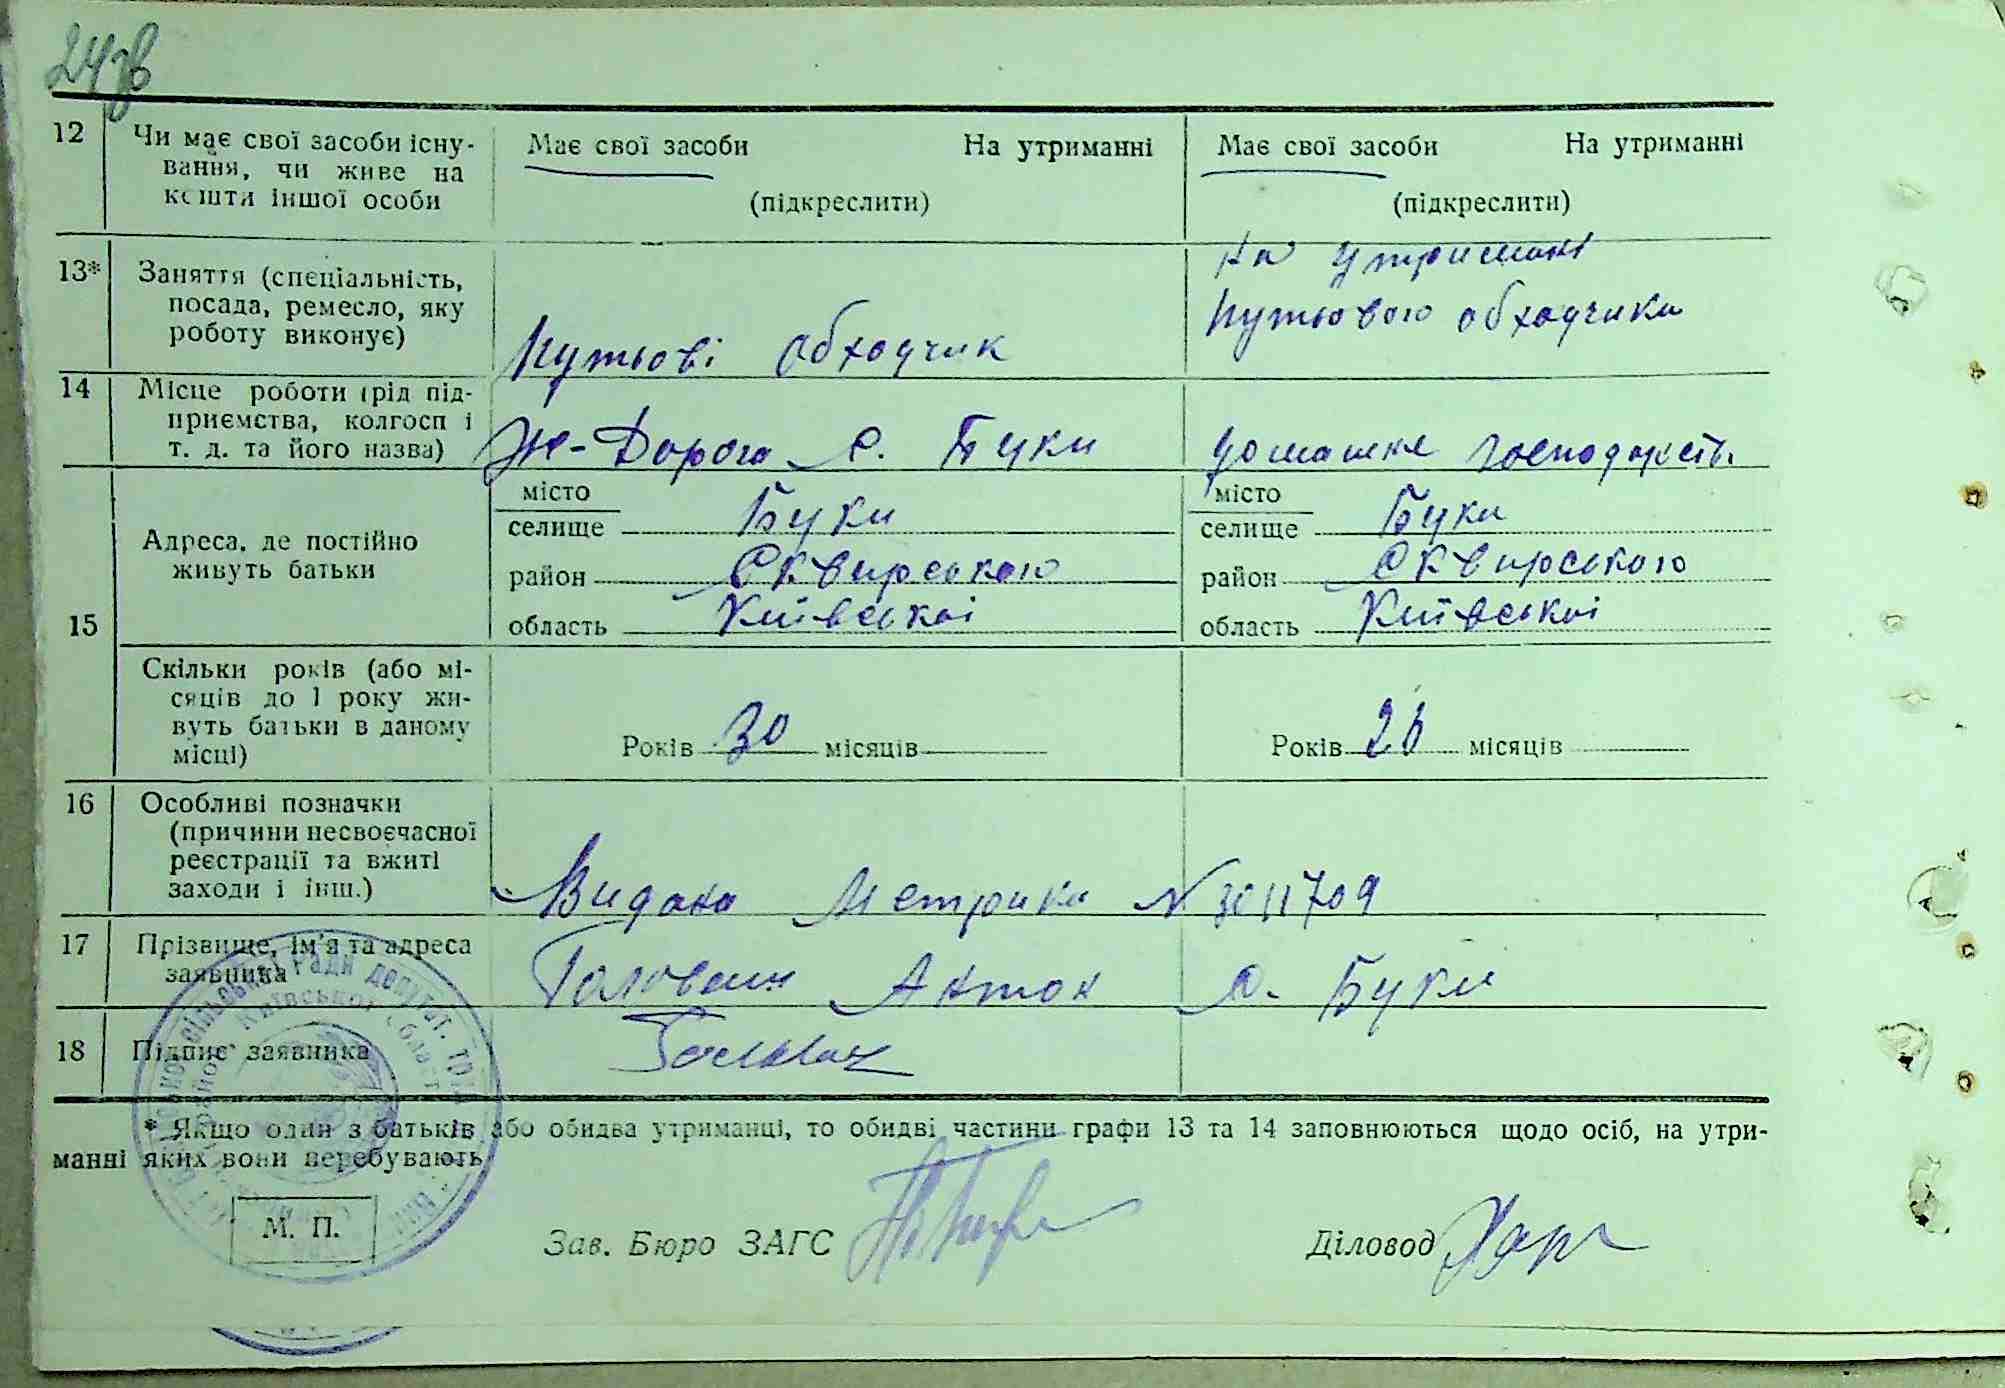 24зв
12 Чи має свої засоби існу- Має свої засоби На утриманні Має свої засоби На утриманні
вання, чи живе на
кошти іншої особи (підкреслити) (підкреслити)
13* Заняття (спеціальність, на утримані
посада, ремесло, яку путьового обходчика
роботу виконує) Путьові обходчик
14 Місце роботи (рід під-
приємства, колгосп і
т. д. та його назва) Жел-Дорога с. Буки домашнє господарств.
місто місто
селище Буки селище Буки
Адреса, де постійно
живуть батьки район Сквирського район Сквирського
15 область Київськоі область Київськоі
Скільки років (або мі-
сяців до 1 року жи-
вуть батьки в даному
місці) Років 30 місяців Років 26 місяців
16 Особливі позначки
(причини несвоєчасної
реєстрації та вжиті
заходи і інш.) Видана Метрика № 3011709
17 Прізвище, ім'я та адреса
заявника Головач Антон с. Буки
18 Підпис заявника Головач
* Якщо один з батьків або обидва утриманці, то обидві частини графи 13 та 14 заповнюються щодо осіб, на утри-
манні яких вони перебувають
М. П. Зав. Бюро ЗАГС Діловод